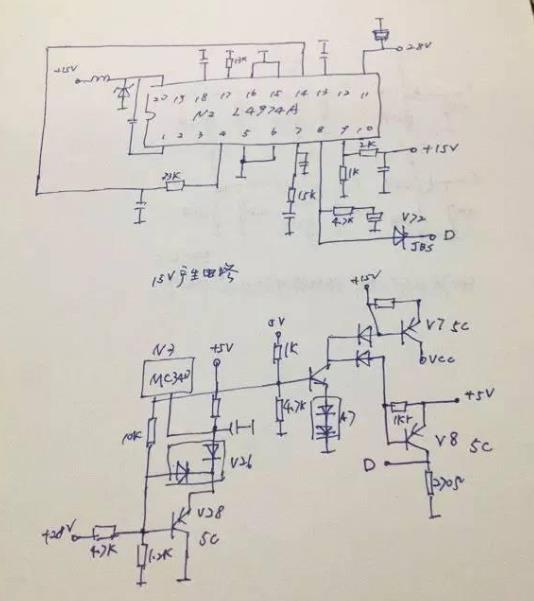 +28V
+15V
13K
20 19 18 17 16 15 14 13 12 11
N2 L4974A
1 2 3 4 5 6 7 8 9 10
2K
+15V
1K
15K
4.7K
V22
D
JBS
15V产生电路
+15V
V7 5C
VCC
N3
MC340
+5V
1K
4.7K
A7
+5V
1K
V8
5C
10K
V26
D
270Ω
+28V
4.7K
1.2K
V28
5C